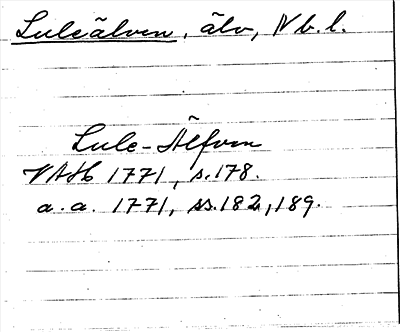 Luleälven, älv, Nb.l.
Lule-Älfven
VAH 1771, s.178.
a.a. 1771, ss.182,189.